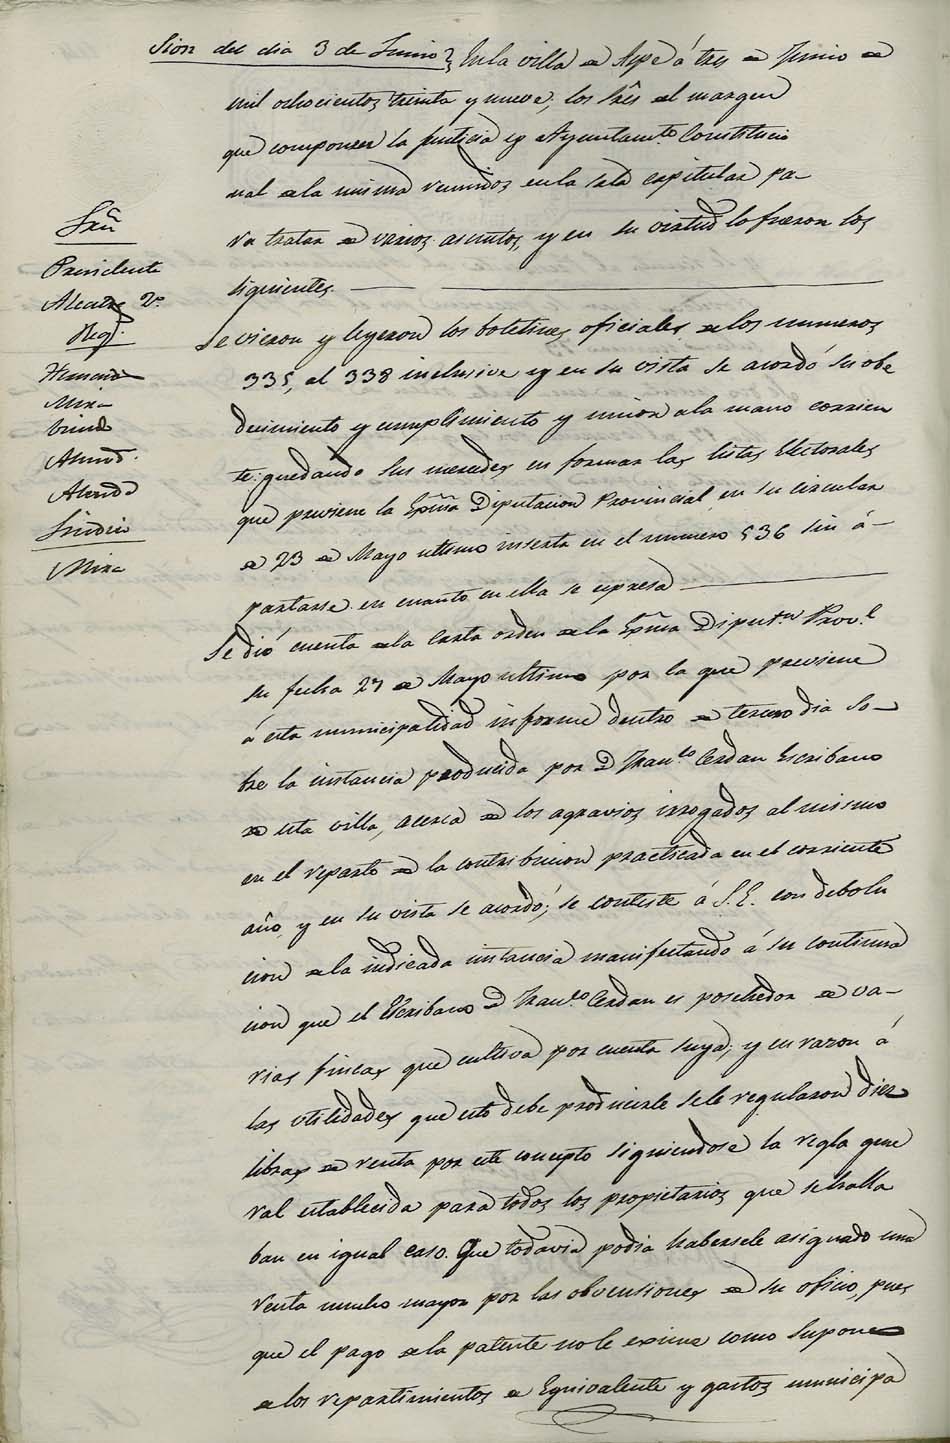 Sion del dia 3 de Junio} En la villa de Aspe á tres de Junio de
mil ochocientos treinta y nueve; los Sres del margen
que componen la Justicia y Ayuntamto. Constitucio
nal de la misma reunidos en la sala capitular pa-
ra tratar de varios asuntos, y en su virtud lo fueron los
siguientes.
Sres
Presidente
Alcalde 2º
Reg.
Mira
Almod.
Almodo
Sindico
Mira
Se vieron y leyeron los boletines oficiales de los numeros
335, al 338 inclusive y en su vista se acordó su obe
decimiento y cumplimiento y union a la mano corrien
te: quedando sus mercedes en formar las listas Electorales
que previene la Exma Diputacion Provincial en su circular
de 23 de Mayo ultimo inserta en el numero 536 sin á-
partarse en cuanto en ella se espresa
Se dió cuenta de la Carta orden de la Exma Diputon Provl
su fecha 27 de Mayo ultimo por la que previene
á esta municipalidad informe dentro de tercero dia so-
bre la instancia producida por D Franco Cerdan Escribano
de esta villa, acerca de los agravios irrogados al mismo
en el reparto de la contribucion practicada en el corriente
año, y en su vista se acordó; se conteste á S.E. con debolu
cion de la indicada instancia manifestando á su continua
cion que el Escribano D Franco Cerdan es posehedor de va-
rias fincas que cultiva por cuenta suya; y en razon á
las utilidades que esto debe producirle se le regularon diez
libras de renta por este concepto siguiendose la regla gene
ral establecida para todos los propietarios que se halla
ban en igual caso. Que todavia podia habersele asignado una
renta mucho mayor por las obvensiones de su oficio, pues
que el pago de la patente no le exime como supone
de los repartimientos de Equivalente y gastos municipa